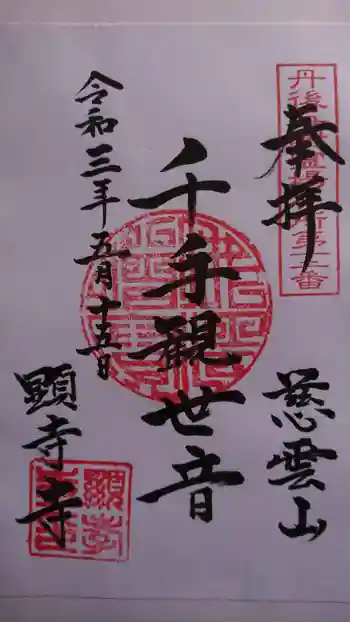 丹後
奉拝
慈雲山
千手観世音
令和三年五月十五日
顕孝寺